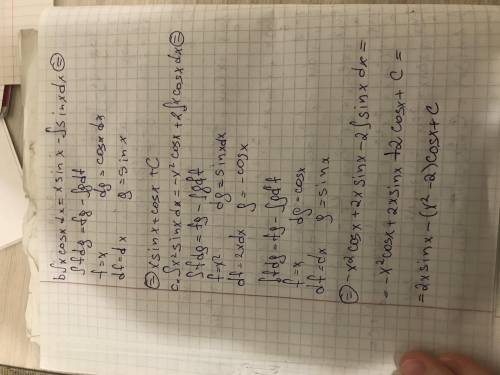 b∫xcosxdx = xsinx - ∫sinxdx ⊜
∫fdg = fg - ∫gdf
f=x dg=cosxdx
df=dx g=sinx
⊜ xsinx+cosx+C
c. ∫x²sinxdx = -x²cosx+2∫xcosxdx ⊜
∫fdg=fg-∫gdf
f=x² dg=sinxdx
df=2xdx g=-cosx
∫fdg=fg-∫gdf
f=x dg=cosx
df=dx g=sinx
⊜ -x2cosx+2xsinx-2∫sinxdx=
=-x²cosx+2xsinx+2cosx+C=
=2xsinx-(x²-2)cosx+C